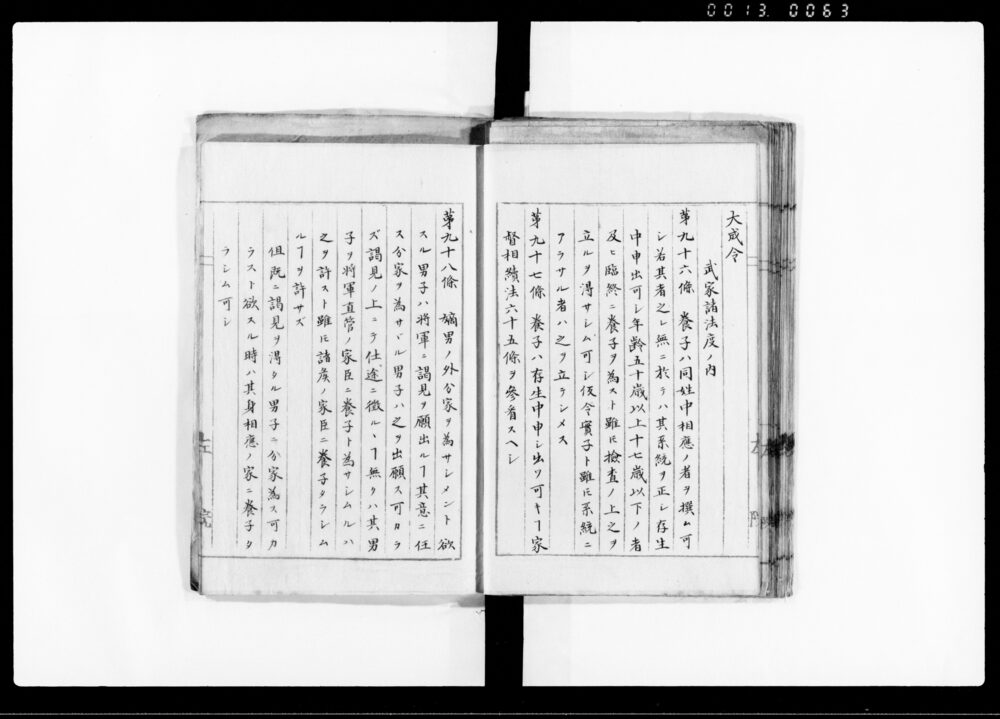 0013. 0063
大成令
武家諸法度ノ内
第九十六條 養子ハ同姓中相應ノ者ヲ撰ム可
シ若其者之レ無ニ於テハ其系統ヲ正シ存生
中申出可シ年齢五十歳以上十七歳以下ノ者
及ヒ臨終ニ養子ヲ為スト雖𪜈檢査ノ上之ヲ
立ルヲ得サシム可シ仮令實子ト雖𪜈系統ニ
アラサル者ハ之ヲ立ランメス
第九十七條 養子ハ存生中申シ出ツ可キヿ家
督相續法六十五條ヲ參看スヘシ
第九十八條 嫡男ノ外分家ヲ為サシメント欲
スル男子ハ将軍ニ謁見ヲ願出ルヿ其意ニ任
ス分家ヲ為サヾル男子ハ之ヲ出願ス可カラ
ズ謁見ノ上ニテ仕途ニ徴ルヽヿ無クハ其男
子ヲ将軍直管ノ家臣ニ養子ト為サシムルハ
之ヲ許スト雖𪜈諸侯ノ家臣ニ養子タラシム
ルヿヲ許サズ
但既ニ謁見ヲ得タル男子ニ分家為ス可カ
ラスト欲スル時ハ其身相應ノ家ニ養子タ
ラシム可シ
左院